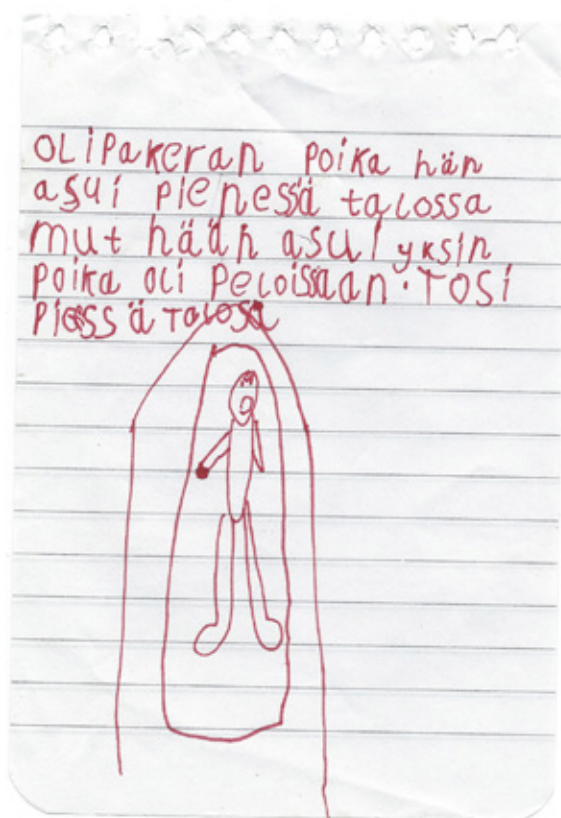 OLiPaKeran Poika hän
asui Pienessä talossa
mut hään asui yksin
Poika oli Peloissaan. TOSi
Piessä Talossa